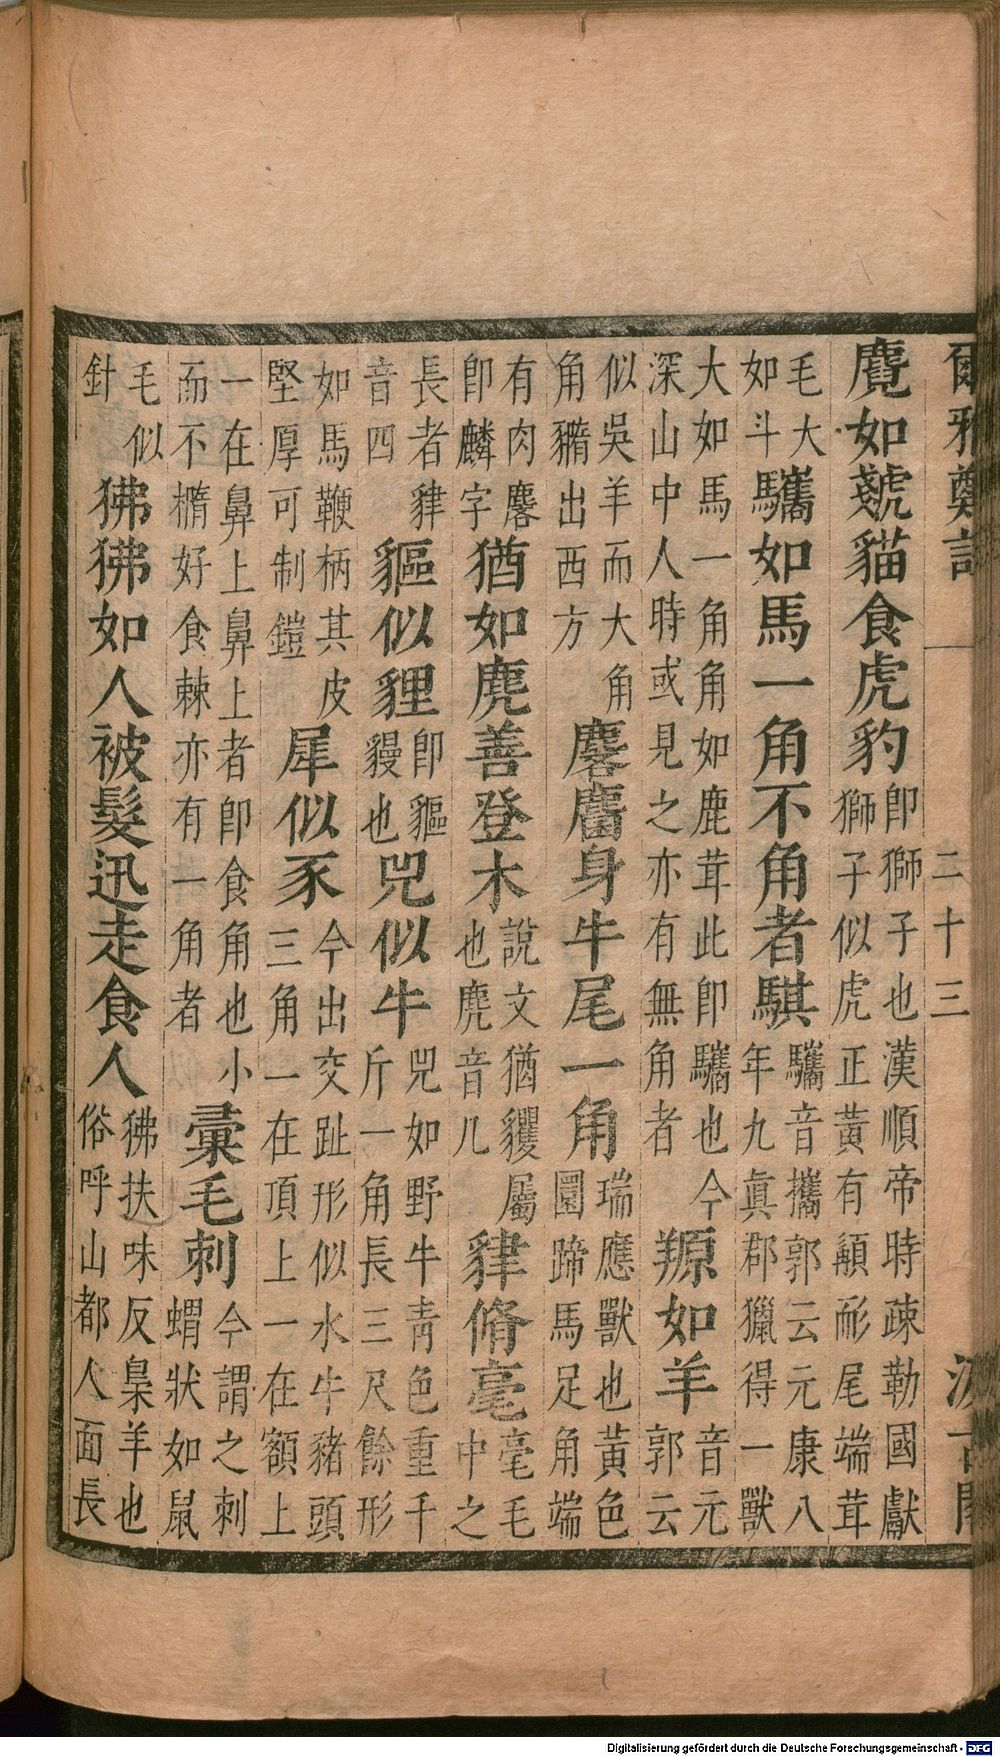 爾雅鄭註
二十三
汲古閣
麑如虦貓食虎豹
即獅子也漢順帝時疎勒國獻
獅子似虎正黃有顄耏尾端茸
毛大
如斗
驨如馬一角不角者騏
驨音攜郭云元康八
年九眞郡獵得一獸
大如馬一角角如鹿茸此即驨也今
深山中人時或見之亦有無角者
羱如羊
音元
郭云
似吳羊而大角
角橢出西方
麐麕身牛尾一角
瑞應獸也黃色
圜蹄馬足角端
有肉麐
即麟字
猶如麂善登木
說文猶玃屬
也麂音几
貄脩毫
毫毛
中之
長者貄
音四
貙似貍
即貙
獌也
兕似牛
兕如野牛青色重千
斤一角長三尺餘形
如馬鞭柄其皮
堅厚可制鎧
犀似豕
今出交趾形似水牛豬頭
三角一在頂上一在額上
一在鼻上鼻上者即食角也小
而不橢好食棘亦有一角者
彙毛刺
今謂之刺
蝟狀如鼠
毛似
針
狒狒如人被髮迅走食人
狒扶味反梟羊也
俗呼山都人面長
Digitalisierung gefördert durch die Deutsche Forschungsgemeinschaft - DFG